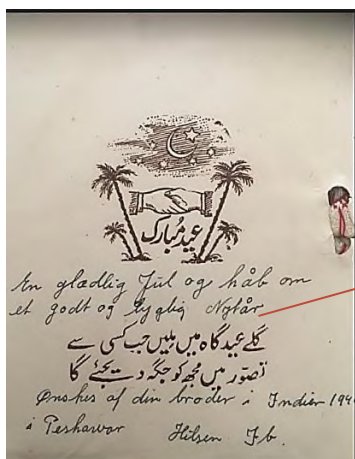 عید مُبارک
En glædlig Jul og håb om
et godt og lyglig Nytår
گلے عیدگاہ میں ملیں جب کسی سے
تصوّر میں مجھ کو جگہ دیجئے گا
Ønskes af din broder i Indien 194
i Peshawar Hilsen Ib.